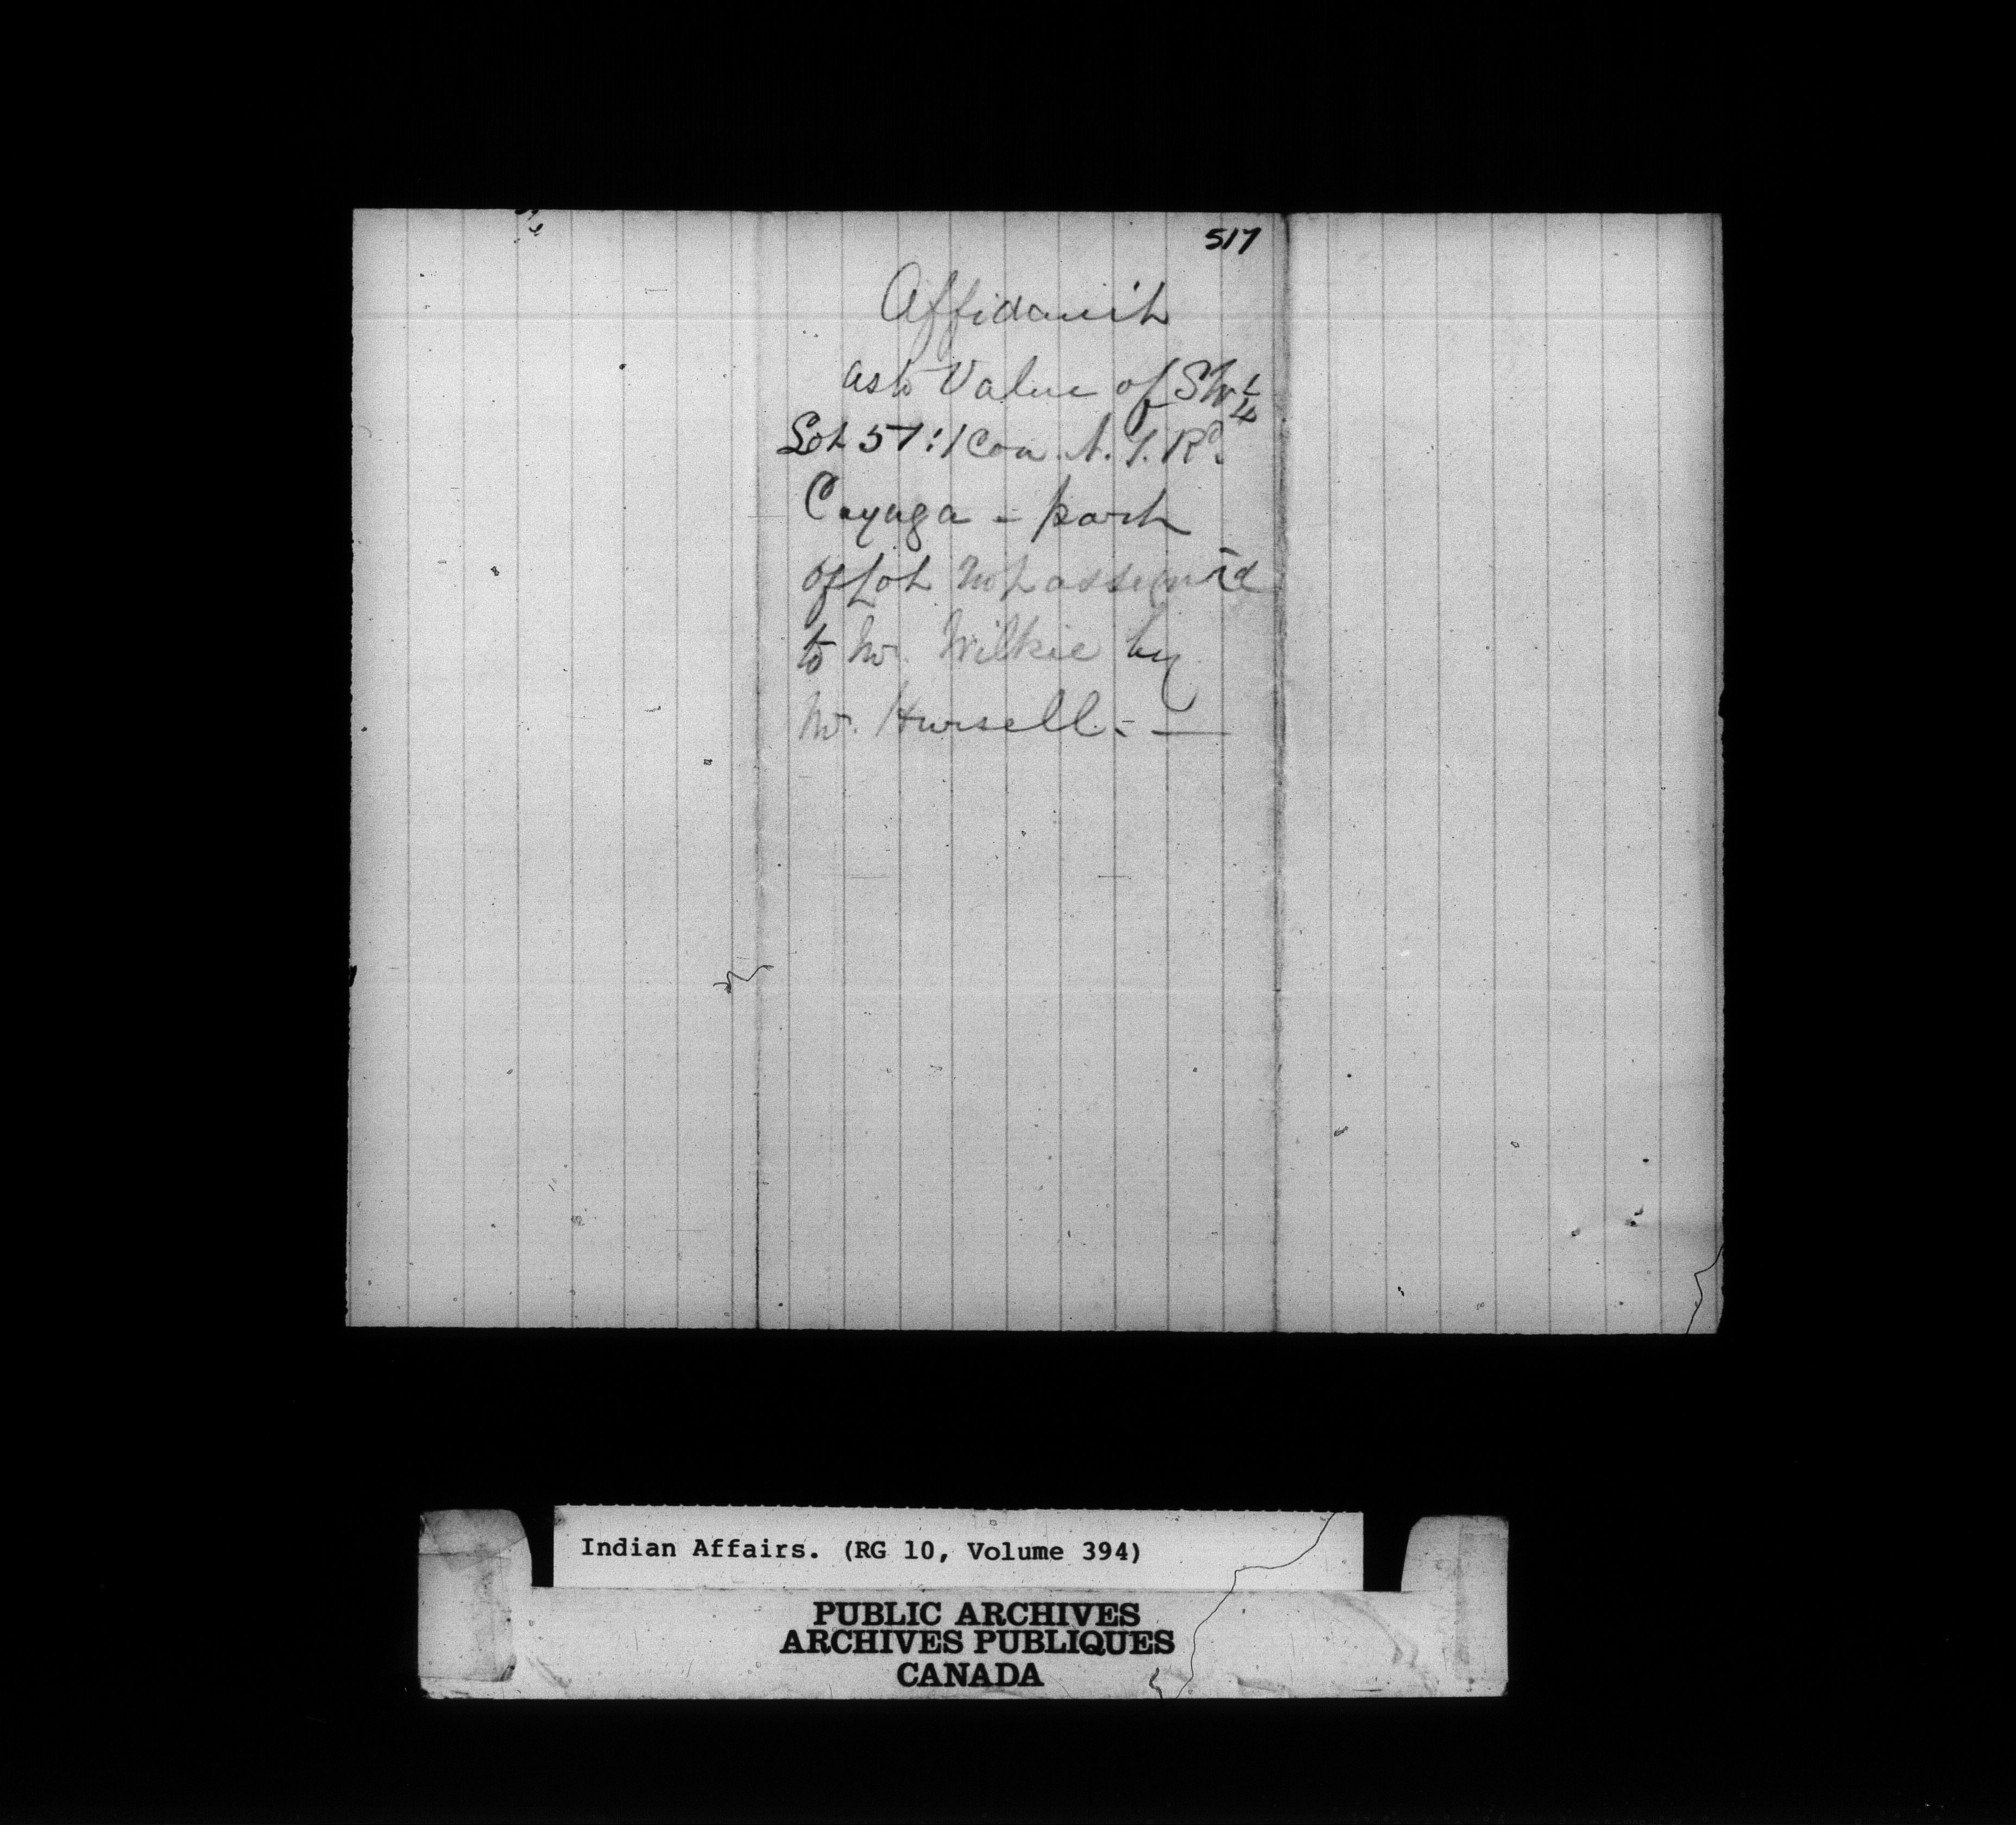 517
Affidavit
as to Value of SW 1/4
Lot 57: 1 Con. N. T. Rd.
Cayuga - part
of Lot not assigned
to Mr. Wilkie by
Mr. Hursell. - —
Indian Affairs. (RG 10, Volume 394)
PUBLIC ARCHIVES
ARCHIVES PUBLIQUES
CANADA